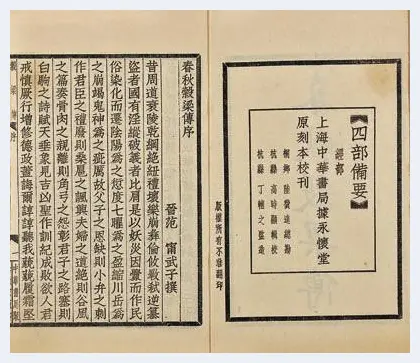 四部備要
經部
上海中華書局據永懷堂
原刻本校刊
桐鄉 陸費逵總勘
杭縣 高時顯輯校
杭縣 丁輔之監造
版權所有不許翻印
春秋穀梁傳序
晉范 甯武子撰
昔周道衰陵乾綱絕紐禮壞樂崩彝倫攸斁弒逆篡
盜者國有淫縱破義者比肩是以妖災因釁而作民
俗染化而遷陰陽爲之愆度七曜爲之盈縮川岳爲
之崩竭鬼神爲之疵厲故父子之恩缺則小弁之刺
作君臣之禮廢則桑扈之諷興夫婦之道絕則谷風
之篇奏骨肉之親離則角弓之怨彰君子之路塞則
白駒之詩賦天垂象見吉凶聖作訓紀成敗欲人君
戒慎厥行增修德政蓋誨爾諄諄聽我藐藐履霜堅